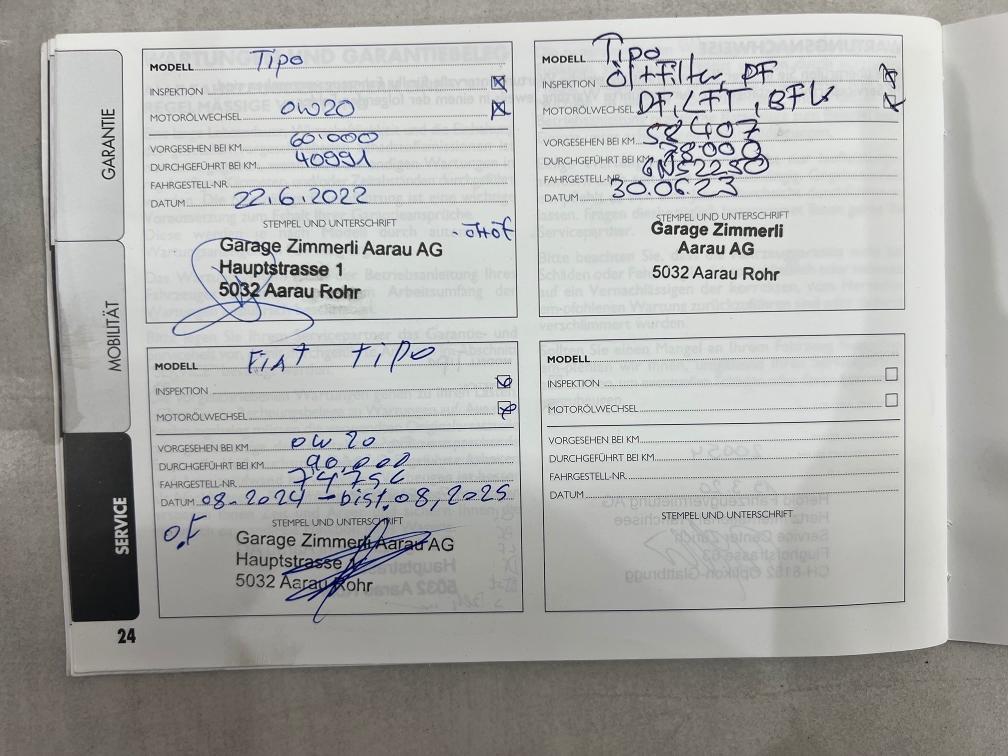 GARANTIE
MOBILITÄT
SERVICE
24
MODELL Tipo
INSPEKTION
MOTORÖLWECHSEL 0W20
VORGESEHEN BEI KM 60.000
DURCHGEFÜHRT BEI KM 40991
FAHRGESTELL-NR.
DATUM 22.6.2022
STEMPEL UND UNTERSCHRIFT
Garage Zimmerli Aarau AG
Hauptstrasse 1
5032 Aarau Rohr
MODELL Tipo
INSPEKTION Öl+Filter, PF
MOTORÖLWECHSEL DF, LFT, BFW
VORGESEHEN BEI KM 58407
DURCHGEFÜHRT BEI KM
FAHRGESTELL-NR. 6N52250
DATUM 30.06.23
STEMPEL UND UNTERSCHRIFT
Garage Zimmerli
Aarau AG
5032 Aarau Rohr
MODELL FIAT TIPO
INSPEKTION
MOTORÖLWECHSEL
VORGESEHEN BEI KM 0W20
DURCHGEFÜHRT BEI KM 90,000
FAHRGESTELL-NR.
DATUM 08.2024 - bist.08,2025
STEMPEL UND UNTERSCHRIFT
Garage Zimmerli Aarau AG
Hauptstrasse
5032 Aarau Rohr
MODELL
INSPEKTION
MOTORÖLWECHSEL
VORGESEHEN BEI KM
DURCHGEFÜHRT BEI KM
FAHRGESTELL-NR.
DATUM
STEMPEL UND UNTERSCHRIFT